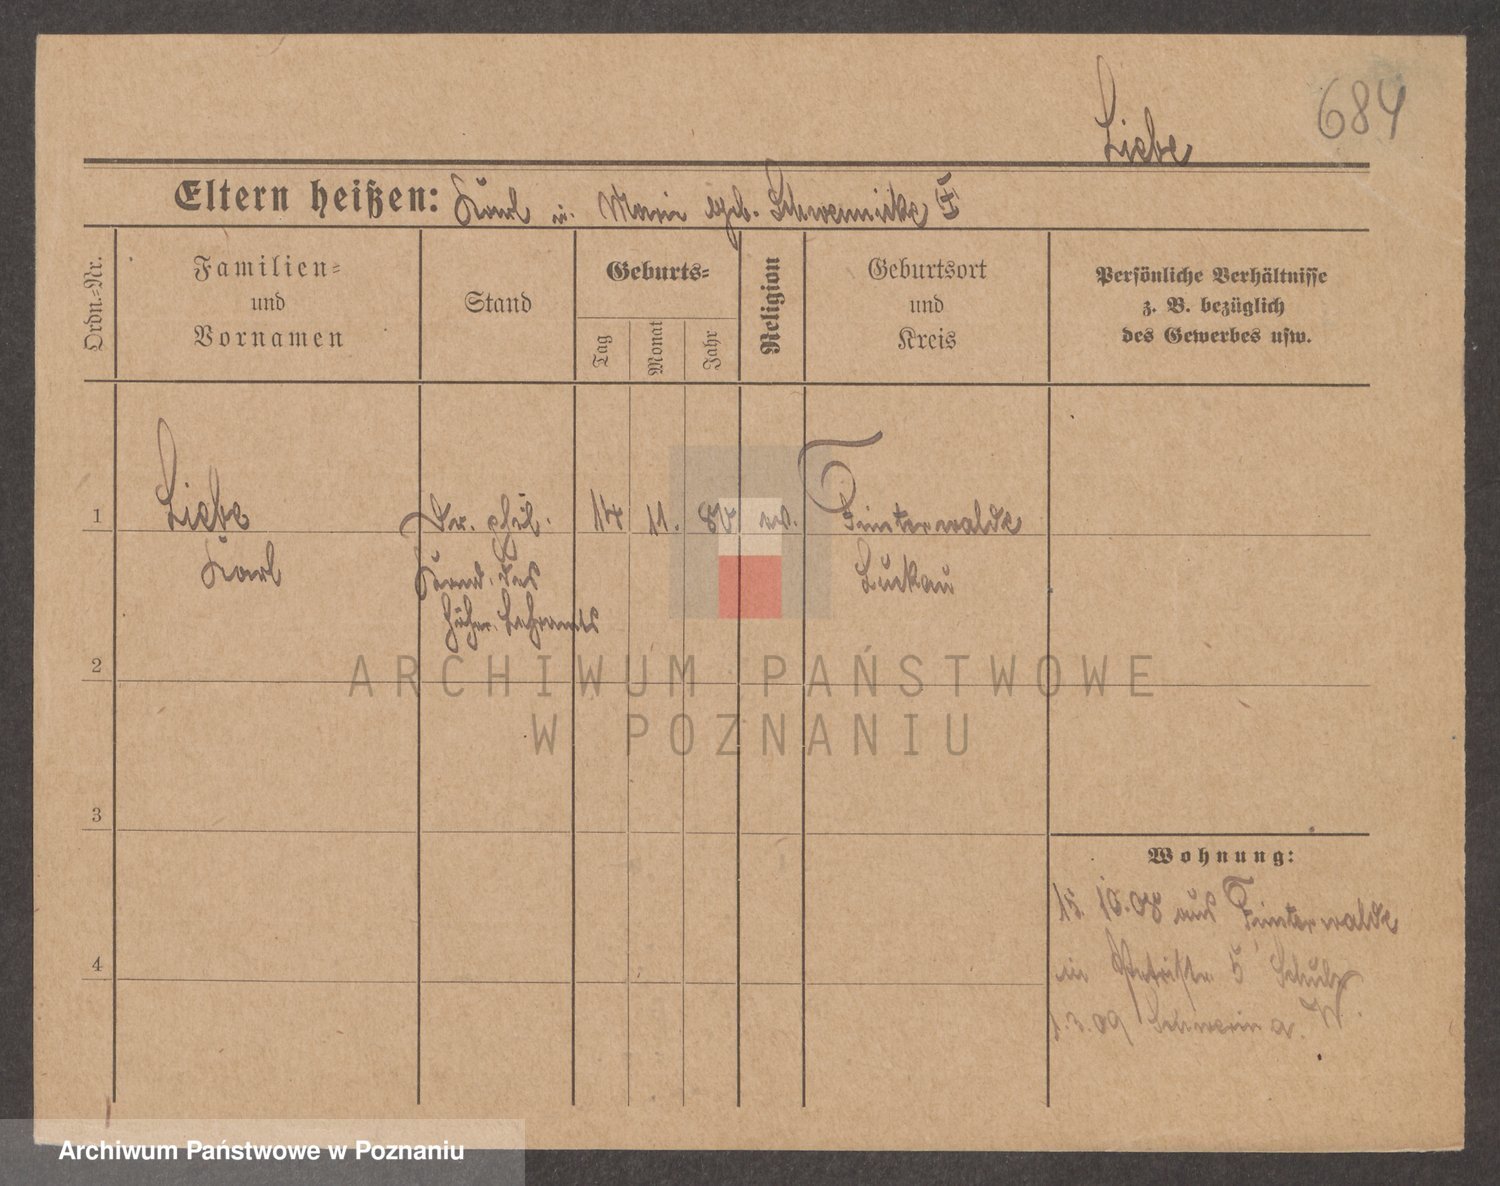 684
Liebe
Eltern heißen: Karl u. Marie geb. Schwennicke
Ordn.=Nr.
Familien=
und
Vornamen
Stand
Geburts=
Tag
Monat
Jahr
Religion
Geburtsort
und
Kreis
Persönliche Verhältnisse
z. B. bezüglich
des Gewerbes usw.
1
Liebe
Karl
Dr. phil.
Kand. des
höher. Lehramts
14
11.
80
ev.
Finsterwalde
Luckau
2
3
4
Wohnung:
15. 10.08 aus Finsterwalde
in Petristr. 5 Schulz
1.3.09 Schwerin a. W.
ARCHIWUM PAŃSTWOWE
W POZNANIU
Archiwum Państwowe w Poznaniu